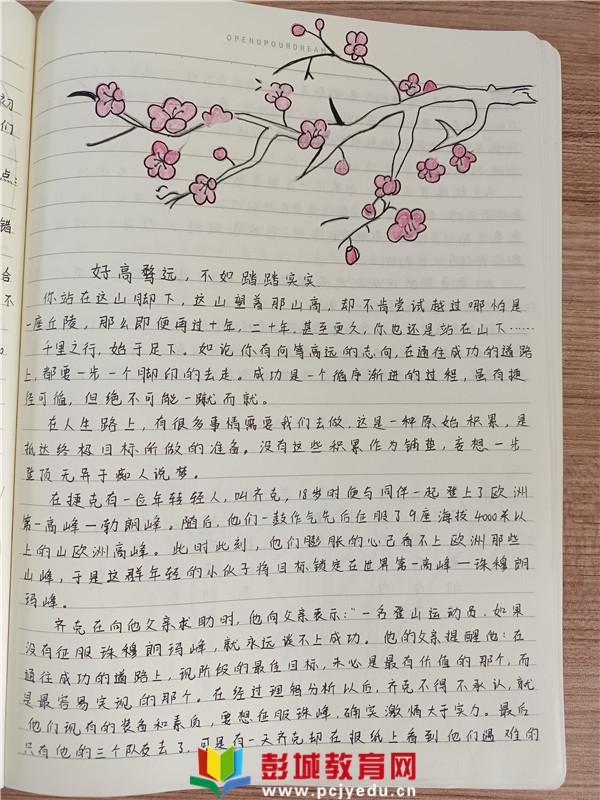 OPENUPOURDREAM
初
们
点:
错
合
不
好高骛远，不如踏踏实实
你站在这山脚下，这山望着那山高，却不肯尝试越过哪怕是
一座丘陵，那么即便再过十年，二十年，甚至更久，你也还是站在山下……
千里之行，始于足下。如论你有何等高远的志向，在通往成功的道路
上，都要一步一个脚印的去走。成功是一个循序渐进的过程，虽有捷
径可循，但绝不可能一蹴而就。
在人生路上，有很多事情需要我们去做，这是一种原始积累，是
抵达终极目标所做的准备。没有这些积累作为铺垫，妄想一步
登顶无异于痴人说梦。
在捷克有一位年轻轻人，叫齐克，18岁时便与同伴一起登上了欧洲
第一高峰一勃朗峰。随后，他们一鼓作气先后征服了9座海拔4000米以
上的山欧洲高峰。此时此刻，他们膨胀的心已看不上欧洲那些
山峰，于是这群年轻的小伙子将目标锁定在世界第一高峰一珠穆朗
玛峰。
齐克在向他父亲求助时，他向父亲表示："一名登山运动员，如果
没有征服珠穆朗玛峰，就永远谈不上成功。他的父亲提醒他：在
通往成功的道路上，现阶段的最佳目标，未必是最有价值的那个，而
是最容易实现的那个。在经过理智分析以后，齐克不得不承认，就
他们现有的装备和素质，要想征服珠峰，确实激情大于实力。最后
只有他的三个队友去了，可是有一天齐克却在报纸上看到他们遇难的
彭城教育网
www.pcjyedu.cn